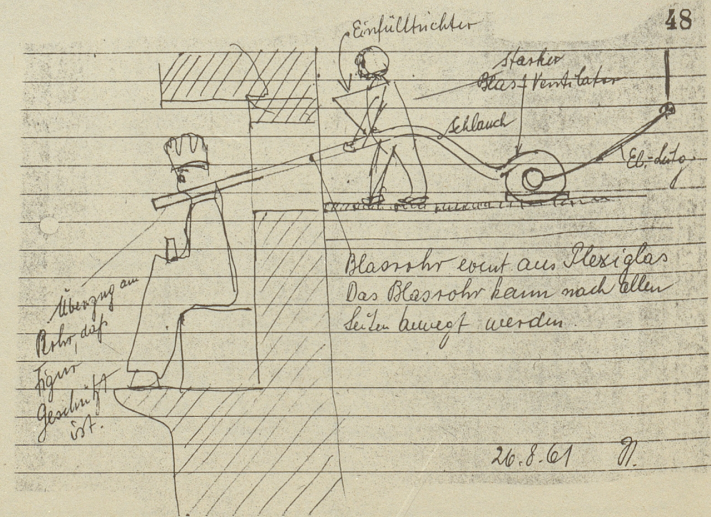 48
Einfülltrichter
starker
Blas-Ventilator
Schlauch
El.-Ltg.
Blasrohr event aus Plexiglas
Das Blasrohr kann nach allen
Seiten bewegt werden.
Überzug am
Rohr, daß
Figur
Geschützt
ist.
26.8.61